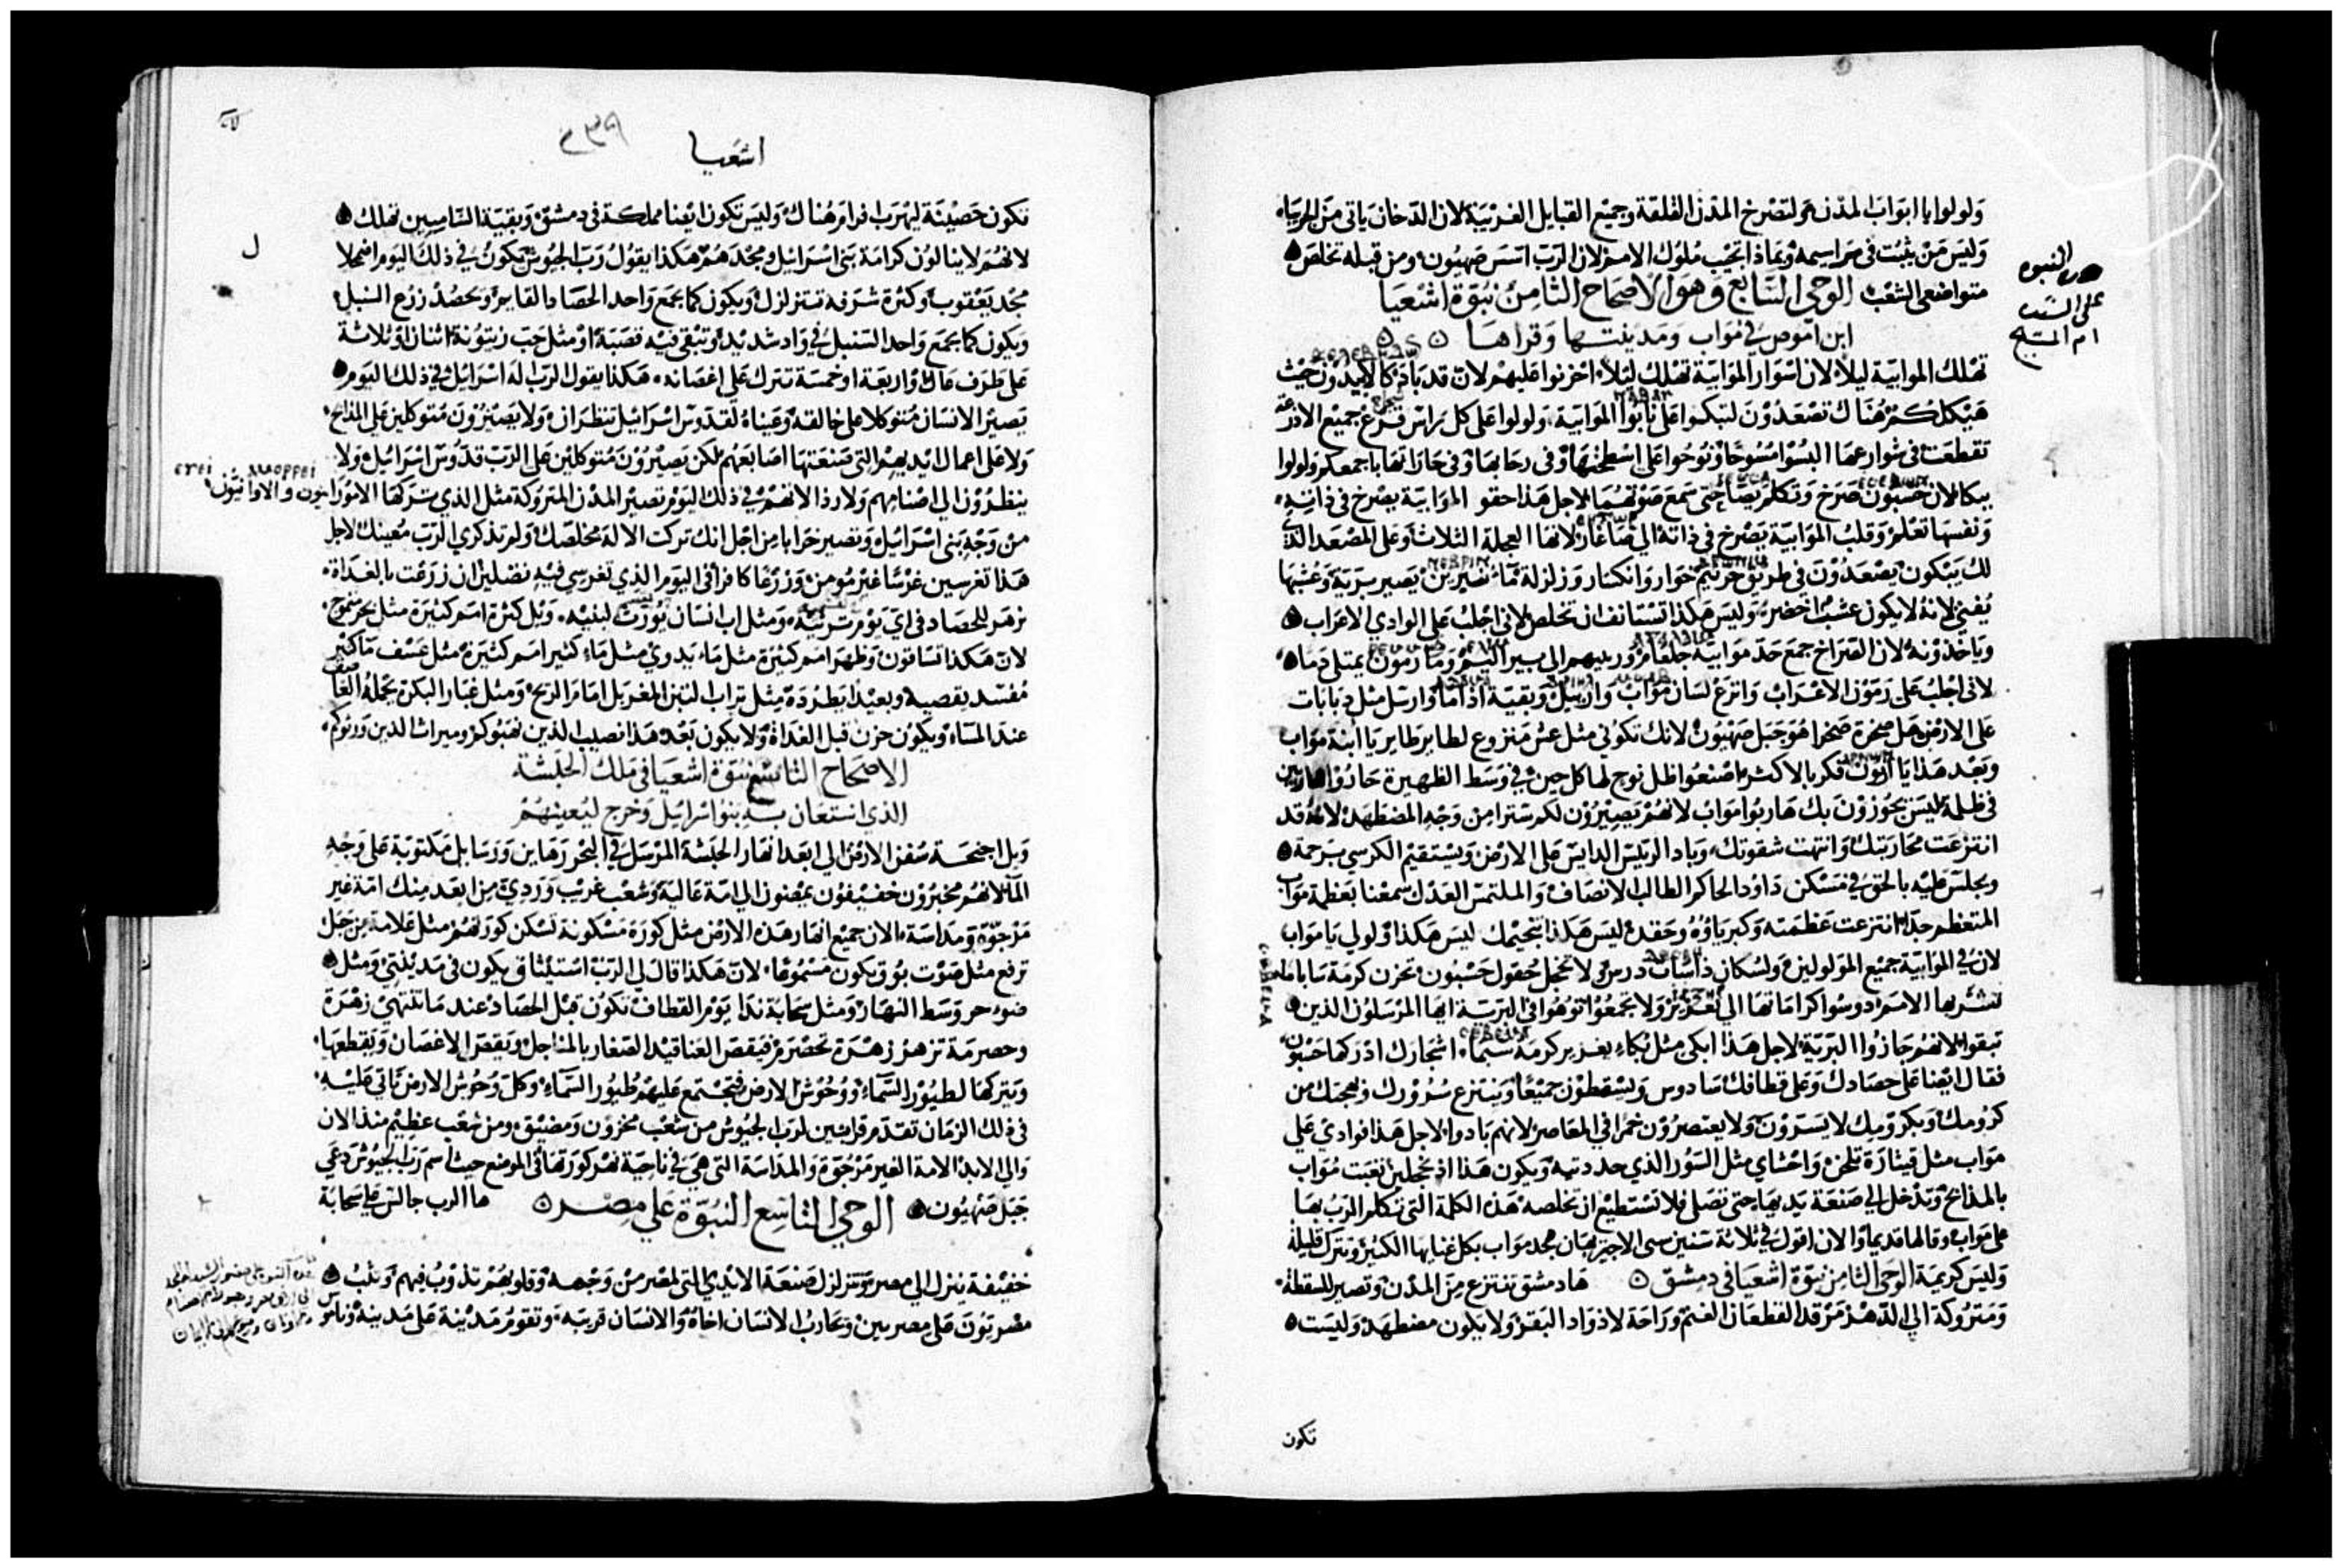 ولولوا يا ابواب المدن ولتصرخ المدن القلقة وجميع القبايل الغريبة لان الدخان ياتى من الجربياء
وليس من يثبت فى مراسيمه وبماذا تجيب ملوك الامم لان الرب اسس صهيون ومن قبله تخلص
متواضعى الشعب الوحى السابع وهو الاصحاح الثامن نبوة اشعيا
ابن اموص فى مواب ومدينتها وقراها
تهلك الموابية ليلا لان اسوار الموابية تهلك ليلا احزنوا عليهم لان قد باد كالابيدون حيث
هيكلكم هناك تصعدون لتبكوا على نابوا الموابية ولولوا على كل راس قرع جميع الاذرعة
تقطعت فى شوارعها البسوا مسوحا ونوحوا على اسطحتها وفى رحابها وفى حاراتها باجمعكم ولولوا
ببكا لان حسبون صرخ وتكلم يصا حتى سمع صوتهما لاجل هذا حقو الموابية يصرخ فى ذاته
ونفسها تعلم وقلب الموابية يصرخ فى ذاته الى صاغار لانها العجلة الثلاث وعلى المصعد الذى
لك يبكون يصعدون فى طريق حورنيم خوار وانكسار وزلزلة ماء نمبرين يصير برية وعشبها
يفنى لانه لا يكون عشب اخضر وليس هكذا تستانف ان تخلص لانى اجلب على الوادى الاعراب
وياخذونه لان الصراخ جمع حد موابية جلغام وريبهم الى بير اليم وما رمون يمتلى دما
لانى اجلب على رمون الاعراب وانزع لسان مواب واربيل وبقية اذاما وارسل مثل دبابات
على الارض هل صخرة صحرا هو جبل صهيون لانك تكونى مثل عش منزوع لطاير طاير يا ابنة مواب
وبعد هذا يا ارنون فكر بالاكثر اصنعوا ظل نوح لها كل حين فى وسط الظهيرة حادوا هاربين
فى ظلمة ليس يجوزون بك هاربوا مواب لانهم يصيرون لكم سترا من وجه المضطهد لانه قد
انتزعت محاربتك وانتهت شقوتك وباد الرئيس الدايس على الارض ويستقيم الكرسى برحمة
ويجلس عليه بالحق فى مسكن داود الحاكم الطالب الانصاف والملتمس العدل سمعنا بعظمة مواب
المتعظم جدا انتزعت عظمته وكبرياؤه وحقده ليس هكذا تنحيمك ليس هكذا ولولى يا مواب
لان فى الموابية جميع المولولين ولسكان ذاساب درس ولا تخجل حقول حسبون تحزن كرمة ساباما
لتشربها الامم دوسوا كراماتها الى يعزير ولا يجمعوا توهوا فى البرية ايها المرسلون الذين
تبقوا لانهم جازوا البرية لاجل هذا ابكى مثل بكاء يعزير كرمة سبما اشجارك ادركها حسبون
فقال ايضا على حصادك وعلى قطافك سادوس ويسقطون جميعا وينتزع سرورك وبهجتك من
كرومك وبكرومك لا يسرون ولا يعتصرون خمرا فى المعاصر لانهم بادوا لاجل هذا فوادى على
مواب مثل قيثارة تلحن واحشاى مثل السور الذى حددتيه ويكون هذا اذ تخجلين تعبت مواب
بالمذابح وتدخل الى صنعة يديها حتى تصلى فلا تستطيع ان تخلصه هذه الكلمة التى تكلم الرب بها
على مواب وقالها قديما والان اقول فى ثلاثة سنين سى الاجير يهان مجد مواب بكل غنايها الكثير وتترك قليلة
وليس كريمة الوحى الثامن نبوة اشعيا فى دمشق ها دمشق تنتزع من المدن وتصير للسقطة
ومتروكة الى الدهر مرقد القطعان الغنم وراحة لاذواد البقر ولا يكون مضطهد وليست
تكون
النبوه
على السيد
ام المسيح
اشعيا
٢٣٩
تكون حصينة ليهرب افرام هناك وليس تكون ايضا مملكة فى دمشق وبقية الشاميين تهلك
لانهم لا ينالون كرامة بنى اسرائيل ومجدهم هكذا يقول رب الجيوش يكون فى ذلك اليوم اضمحلا
مجد يعقوب وكثرة شرفه تتزلزل ويكون كما يجمع واحد الحصاد القايم ويحصد زرع السنبل
ويكون كما يجمع واحد السنبل فى واد شديد وتبقى فيه قصبة او مثل حب زيتونة اثنان او ثلاثة
على طرف عال او اربعة او خمسة تترك على اغصانه هكذا يقول الرب اله اسرائيل فى ذلك اليوم
يصير الانسان متوكلا على خالقه وعيناه لقدوس اسرائيل تنظران ولا يصيرون متوكلين على المذابح
ولا على اعمال ايديهم التى صنعتها اصابعهم لكن يصيرون متوكلين على الرب قدوس اسرائيل ولا
ينظرون الى اصنامهم ولا رذالاتهم فى ذلك اليوم تصير المدن المتروكة مثل الذى تركها الاموراييون والاوانيون
من وجه بنى اسرائيل وتصير خرابا من اجل انك تركت الاله مخلصك ولم تذكرى الرب معينك لاجل
هذا تغرسين غرسا غير مومن وزرعا كافرا فى اليوم الذى تغرسى فيه تضلين ان زرعت بالغداة
تزهر للحصاد فى اى يوم ترثيه ومثل اب انسان يورث لبنيه ويل كثرة امم كثيرة مثل بحر متموج
لان هكذا تساقون وظهر امم كثيرة مثل ماء يدوى مثل ماء كثير امم كثيرة مثل عسف ما كثير
مفسد يقصيه وبعيدا يطرده مثل تراب التبن المغربل امام الريح ومثل غبار البكرة تحمله العاصف
عند المساء ويكون حزن قبل الغداة ولا يكون بعد هذا نصيب الذين نهبوكم وميراث الذين ورثوكم
الاصحاح التاسع نبوة اشعيا فى ملك الحبشة
الذى استعان به بنو اسرائيل وخرج ليعينهم
ويل اجنحة سفن الارض الى ابعد انهار الحبشة المرسل فى البحر رهاين ورسايل مكتوبة على وجه
الماء لانهم مخبرون خفيفون يمضون الى امة عالية وشعب غريب وردى من ابعد منك امة غير
مرجوة ومداسة الان جميع انهار هذه الارض مثل كورة مسكونة تسكن كورتهم مثل علامة من جبل
ترفع مثل صوت بوق يكون مسموعا لان هكذا قال لى الرب استيثاق يكون فى مدينتى ومثل
ضوء حر وسط النهار ومثل سحابة ندا يوم القطاف تكون قبل الحصاد عند ما تنتهى زهرة
وحصرمة تزهر زهرة تحصرم فيقص العناقيد الصغار بالمناجل ويقص الاغصان ويقطعها
ويتركها لطيور السماء ووحوش الارض فتجتمع عليهم طيور السماء وكل وحوش الارض تاتى عليه
فى ذلك الزمان تقدم قرابين لرب الجيوش من شعب محزون ومضيق ومن شعب عظيم منذ الان
والى الابد الامة الغير مرجوة والمداسة التى هى فى ناحية نهر كورتها فى الموضع حيث اسم رب الجيوش دعى
جبل صهيون الوحى التاسع النبوة على مصر ها الرب جالس على سحابة
خفيفة ينزل الى مصر وتتزلزل صنعة الايدى التى لمصر من وجهه وقلوبهم تذوب فيهم وتثب
مصريون على مصريين ويحارب الانسان اخاه والانسان قريبه وتقوم مدينة على مدينة وناموس